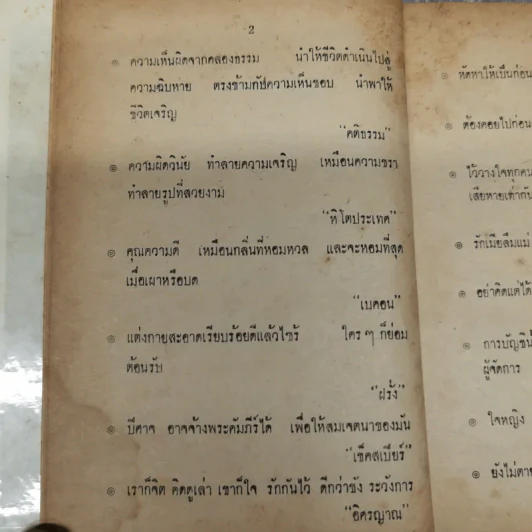 2
๏ ความเห็นผิดจากคลองธรรม นำให้ชีวิตดำเนินไปสู่
ความฉิบหาย ตรงข้ามกับความเห็นชอบ นำพาให้
ชีวิตเจริญ
"คติธรรม"
๏ ความผิดวินัย ทำลายความเจริญ เหมือนความชรา
ทำลายรูปที่สวยงาม
"หิโตประเทศ"
๏ คุณความดี เหมือนกลิ่นที่หอมหวล และจะหอมที่สุด
เมื่อเผาหรือบด
"เบคอน"
๏ แต่งกายสะอาดเรียบร้อยดีแล้วไซร้ ใคร ๆ ก็ย่อม
ต้อนรับ
"ฝรั่ง"
๏ ปีศาจ อาจจ้างพระคัมภีร์ได้ เพื่อให้สมเจตนาของมัน
"เช็คสเปียร์"
๏ เราก็จิต คิดดูเล่า เขาก็ใจ รักกันไว้ ดีกว่าชัง ระวังการ
"อิศรญาณ"
๏ หัดหาให้เป็นก่อน
๏ ต้องคอยไปก่อน
๏ ไว้วางใจทุกคน
เสียหายเท่ากัน
๏ รักเมียลืมแม่
๏ อย่าคิดแต่ได้
๏ การบัญชี
ผู้จัดการ
๏ ใจหญิง
๏ ยังไม่ตาย